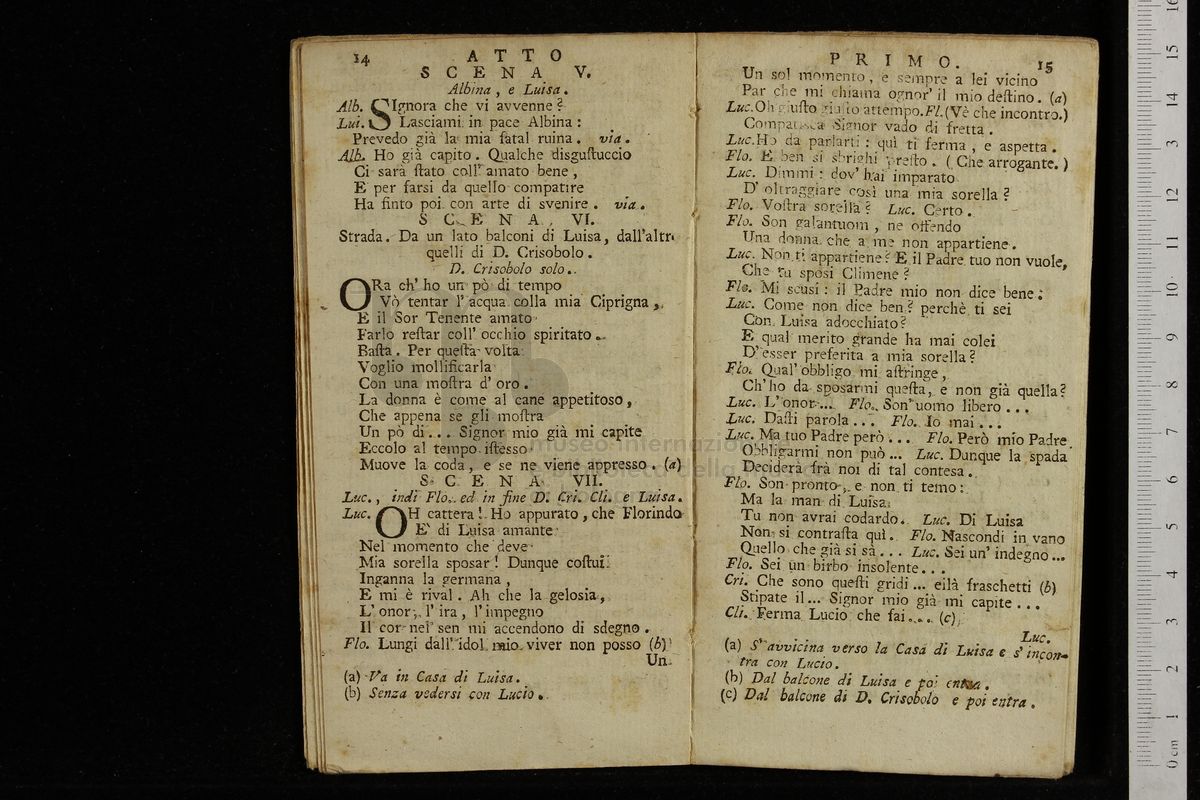 14
ATTO
SCENA V.
Albina, e Luisa.
Alb. SIgnora che vi avvenne?
Lui. Lasciami in pace Albina:
Prevedo già la mia fatal ruina. via.
Alb. Ho già capito. Qualche disguſtuccio
Ci sarà ſtato coll' amato bene,
E per farsi da quello compatire
Ha finto poi con arte di svenire. via.
SCENA VI.
Strada. Da un lato balconi di Luisa, dall'altr
quelli di D. Crisobolo.
D. Crisobolo solo.
ORa ch' ho un pò di tempo
Vò tentar l' acqua colla mia Ciprigna,
E il Sor Tenente amato
Farlo reſtar coll' occhio spiritato.
Baſta. Per queſta volta
Voglio mollificarla
Con una moſtra d' oro.
La donna è come al cane appetitoso,
Che appena se gli moſtra
Un pò di... Signor mio già mi capite
Eccolo al tempo iſtesso
Muove la coda, e se ne viene appresso. (a)
SCENA VII.
Luc., indi Flo., ed in fine D. Cri. Cli. e Luisa.
Luc. OH cattera! Ho appurato, che Florindo
E' di Luisa amante
Nel momento che deve
Mia sorella sposar! Dunque coſtui
Inganna la germana,
E mi è rival. Ah che la gelosia,
L' onor, l' ira, l' impegno
Il cor nel sen mi accendono di sdegno.
Flo. Lungi dall' idol mio viver non posso (b)
Un
(a) Va in Casa di Luisa.
(b) Senza vedersi con Lucio.
PRIMO.
15
Un sol momento, e sempre a lei vicino
Par che mi chiama ognor' il mio deſtino. (a)
Luc. Oh giuſto giuſto attempo. Fl. (Vè che incontro.)
Compatisca Signor vado di fretta.
Luc. Ho da parlarti: qui ti ferma, e aspetta.
Flo. E ben si sbrighi preſto. (Che arrogante.)
Luc. Dimmi: dov' hai imparato
D' oltraggiare così una mia sorella?
Flo. Voſtra sorella? Luc. Certo.
Flo. Son galantuom, ne offendo
Una donna che a me non appartiene.
Luc. Non ti appartiene? E il Padre tuo non vuole,
Che tu sposi Climene?
Flo. Mi scusi: il Padre mio non dice bene.
Luc. Come non dice ben? perchè ti sei
Con Luisa adocchiato?
E qual merito grande ha mai colei
D' esser preferita a mia sorella?
Flo. Qual' obbligo mi aſtringe,
Ch' ho da sposarmi queſta, e non già quella?
Luc. L' onor... Flo. Son' uomo libero...
Luc. Daſti parola... Flo. Io mai...
Luc. Ma tuo Padre però... Flo. Però mio Padre
Obbligarmi non può... Luc. Dunque la spada
Deciderà frà noi di tal contesa.
Flo. Son pronto, e non ti temo:
Ma la man di Luisa
Tu non avrai codardo. Luc. Di Luisa
Non si contraſta quì. Flo. Nascondi in vano
Quello che già si sà... Luc. Sei un' indegno...
Flo. Sei un birbo insolente...
Cri. Che sono queſti gridi... eilà fraschetti (b)
Stipate il... Signor mio già mi capite...
Cli. Ferma Lucio che fai.... (c)
Luc.
(a) S' avvicina verso la Casa di Luisa e s' incon-
tra con Lucio.
(b) Dal balcone di Luisa e poi entra.
(c) Dal balcone di D. Crisobolo e poi entra.